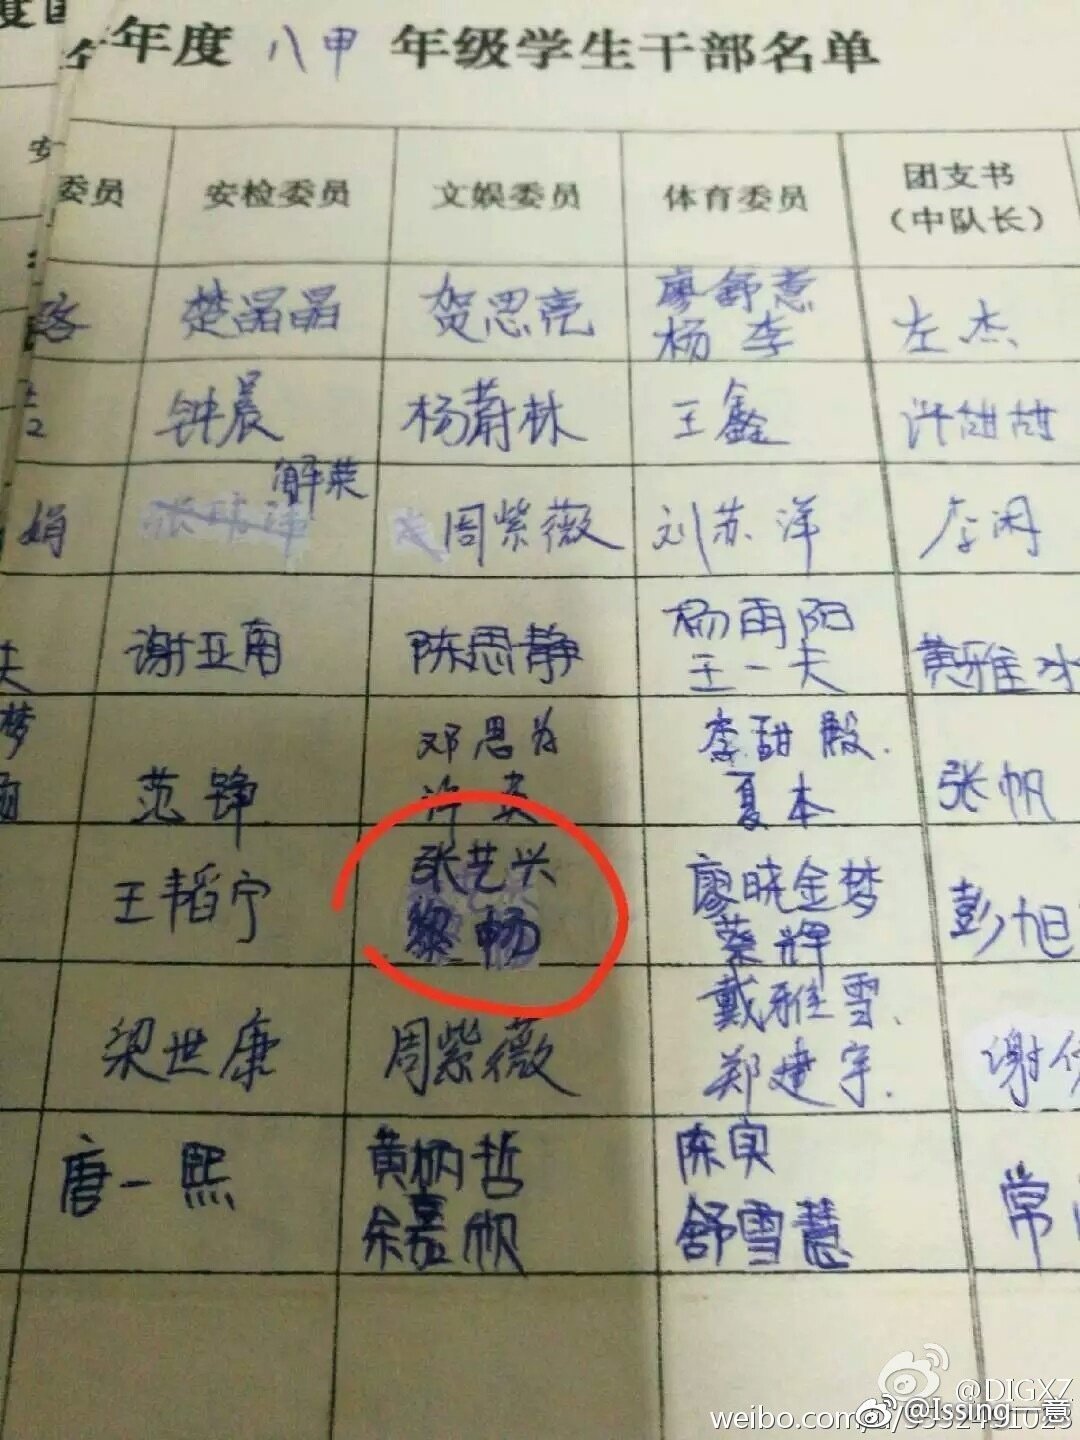 年度 八甲 年级学生干部名单
委员 安检委员 文娱委员 体育委员 团支书
(中队长)
楚晶晶 贺思亮 廖舒意
杨李 左杰
钟晨 杨蔚林 王鑫 许甜甜
解荣
娟 周紫薇 刘苏洋 李闲
谢亚南 陈思静 杨雨阳
王一夫 黄雅冰
夫
梦
邓思为 李甜殿.
范铮 许英 夏本 张帆
王韬宁 张艺兴 廖晓金梦 彭旭
黎畅 蔡辉
梁世康 周紫薇 戴雅雪.
郑建宇. 谢
唐一熙 黄炳哲 陈实 常
余嘉欣 舒雪慧
@DIGXZ
@Issing一意
weibo.com/u/